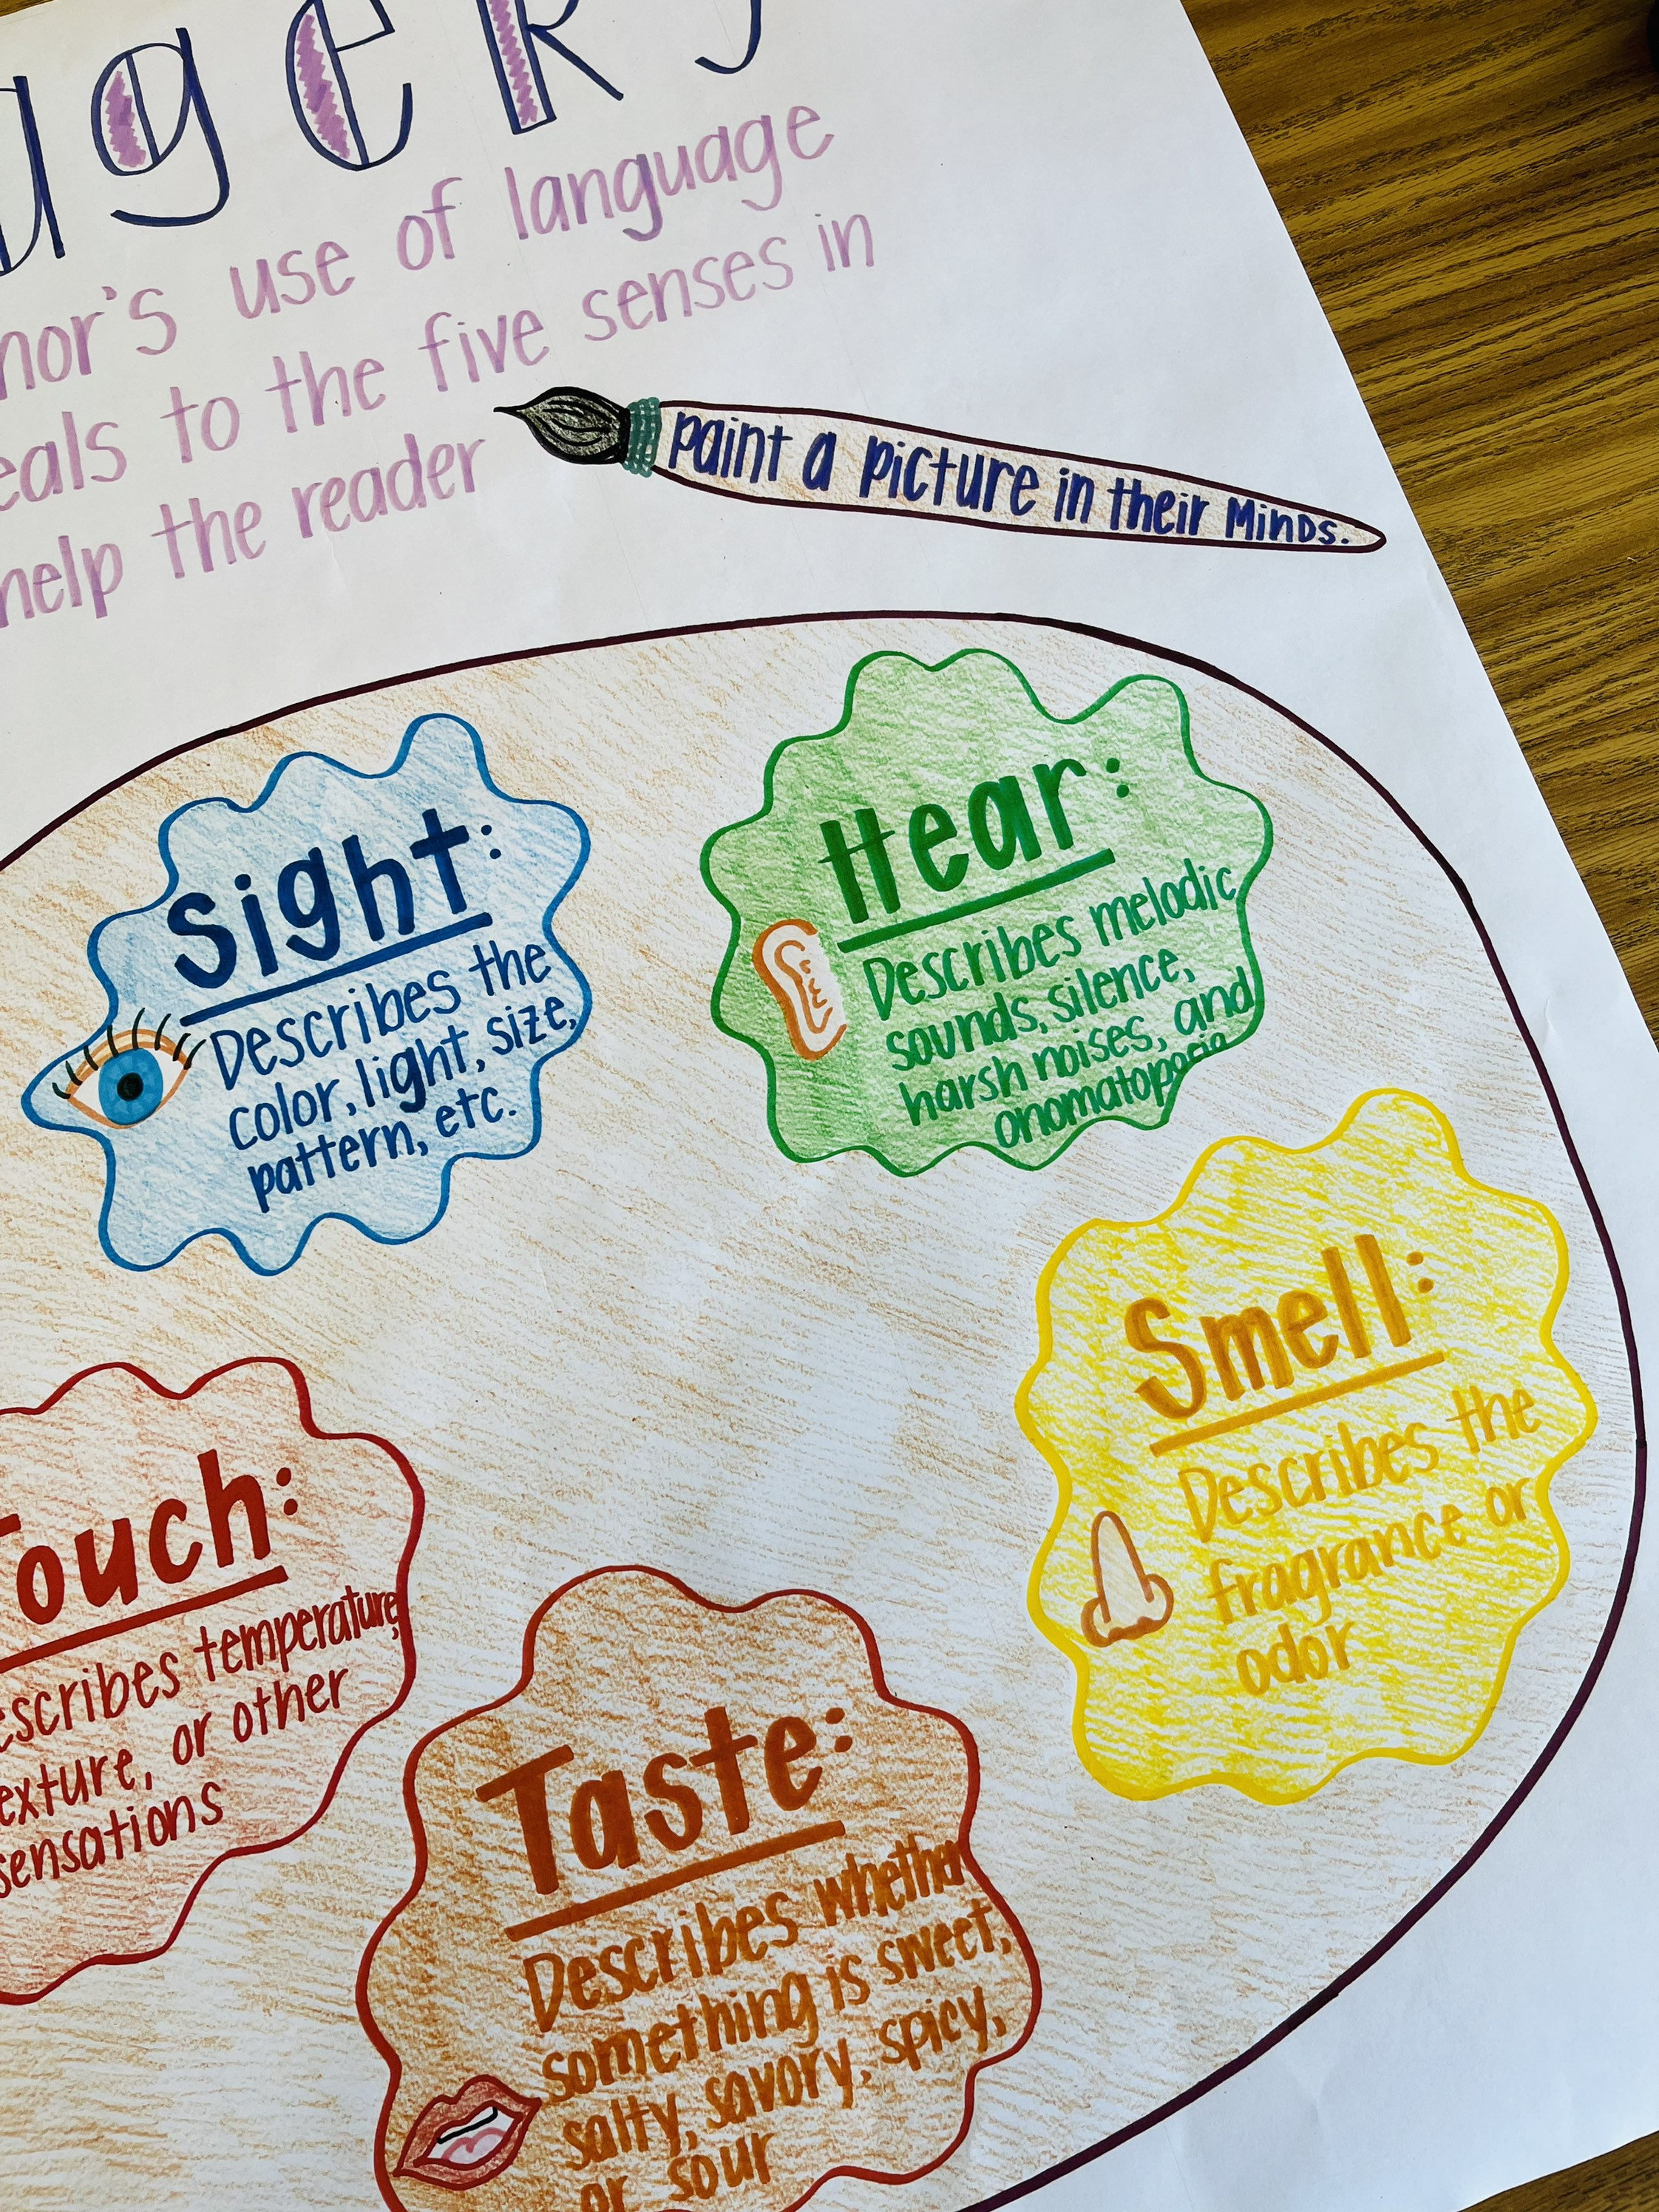 agery
hor's use of language
eals to the five senses in
help the reader
paint a picture in their Minds.
Sight:
Describes the
color, light, size,
pattern, etc.
Hear:
Describes melodic
sounds, silence,
harsh noises, and
onomatopoeia
Smell:
Describes the
fragrance or
odor
Touch:
escribes temperature,
exture, or other
sensations
Taste:
Describes whether
something is sweet,
salty, savory, spicy,
or sour